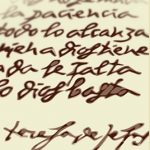 la paciencia
todo lo alcanza
quien a dios tiene
nada le falta
solo dios basta
teresa de jesús